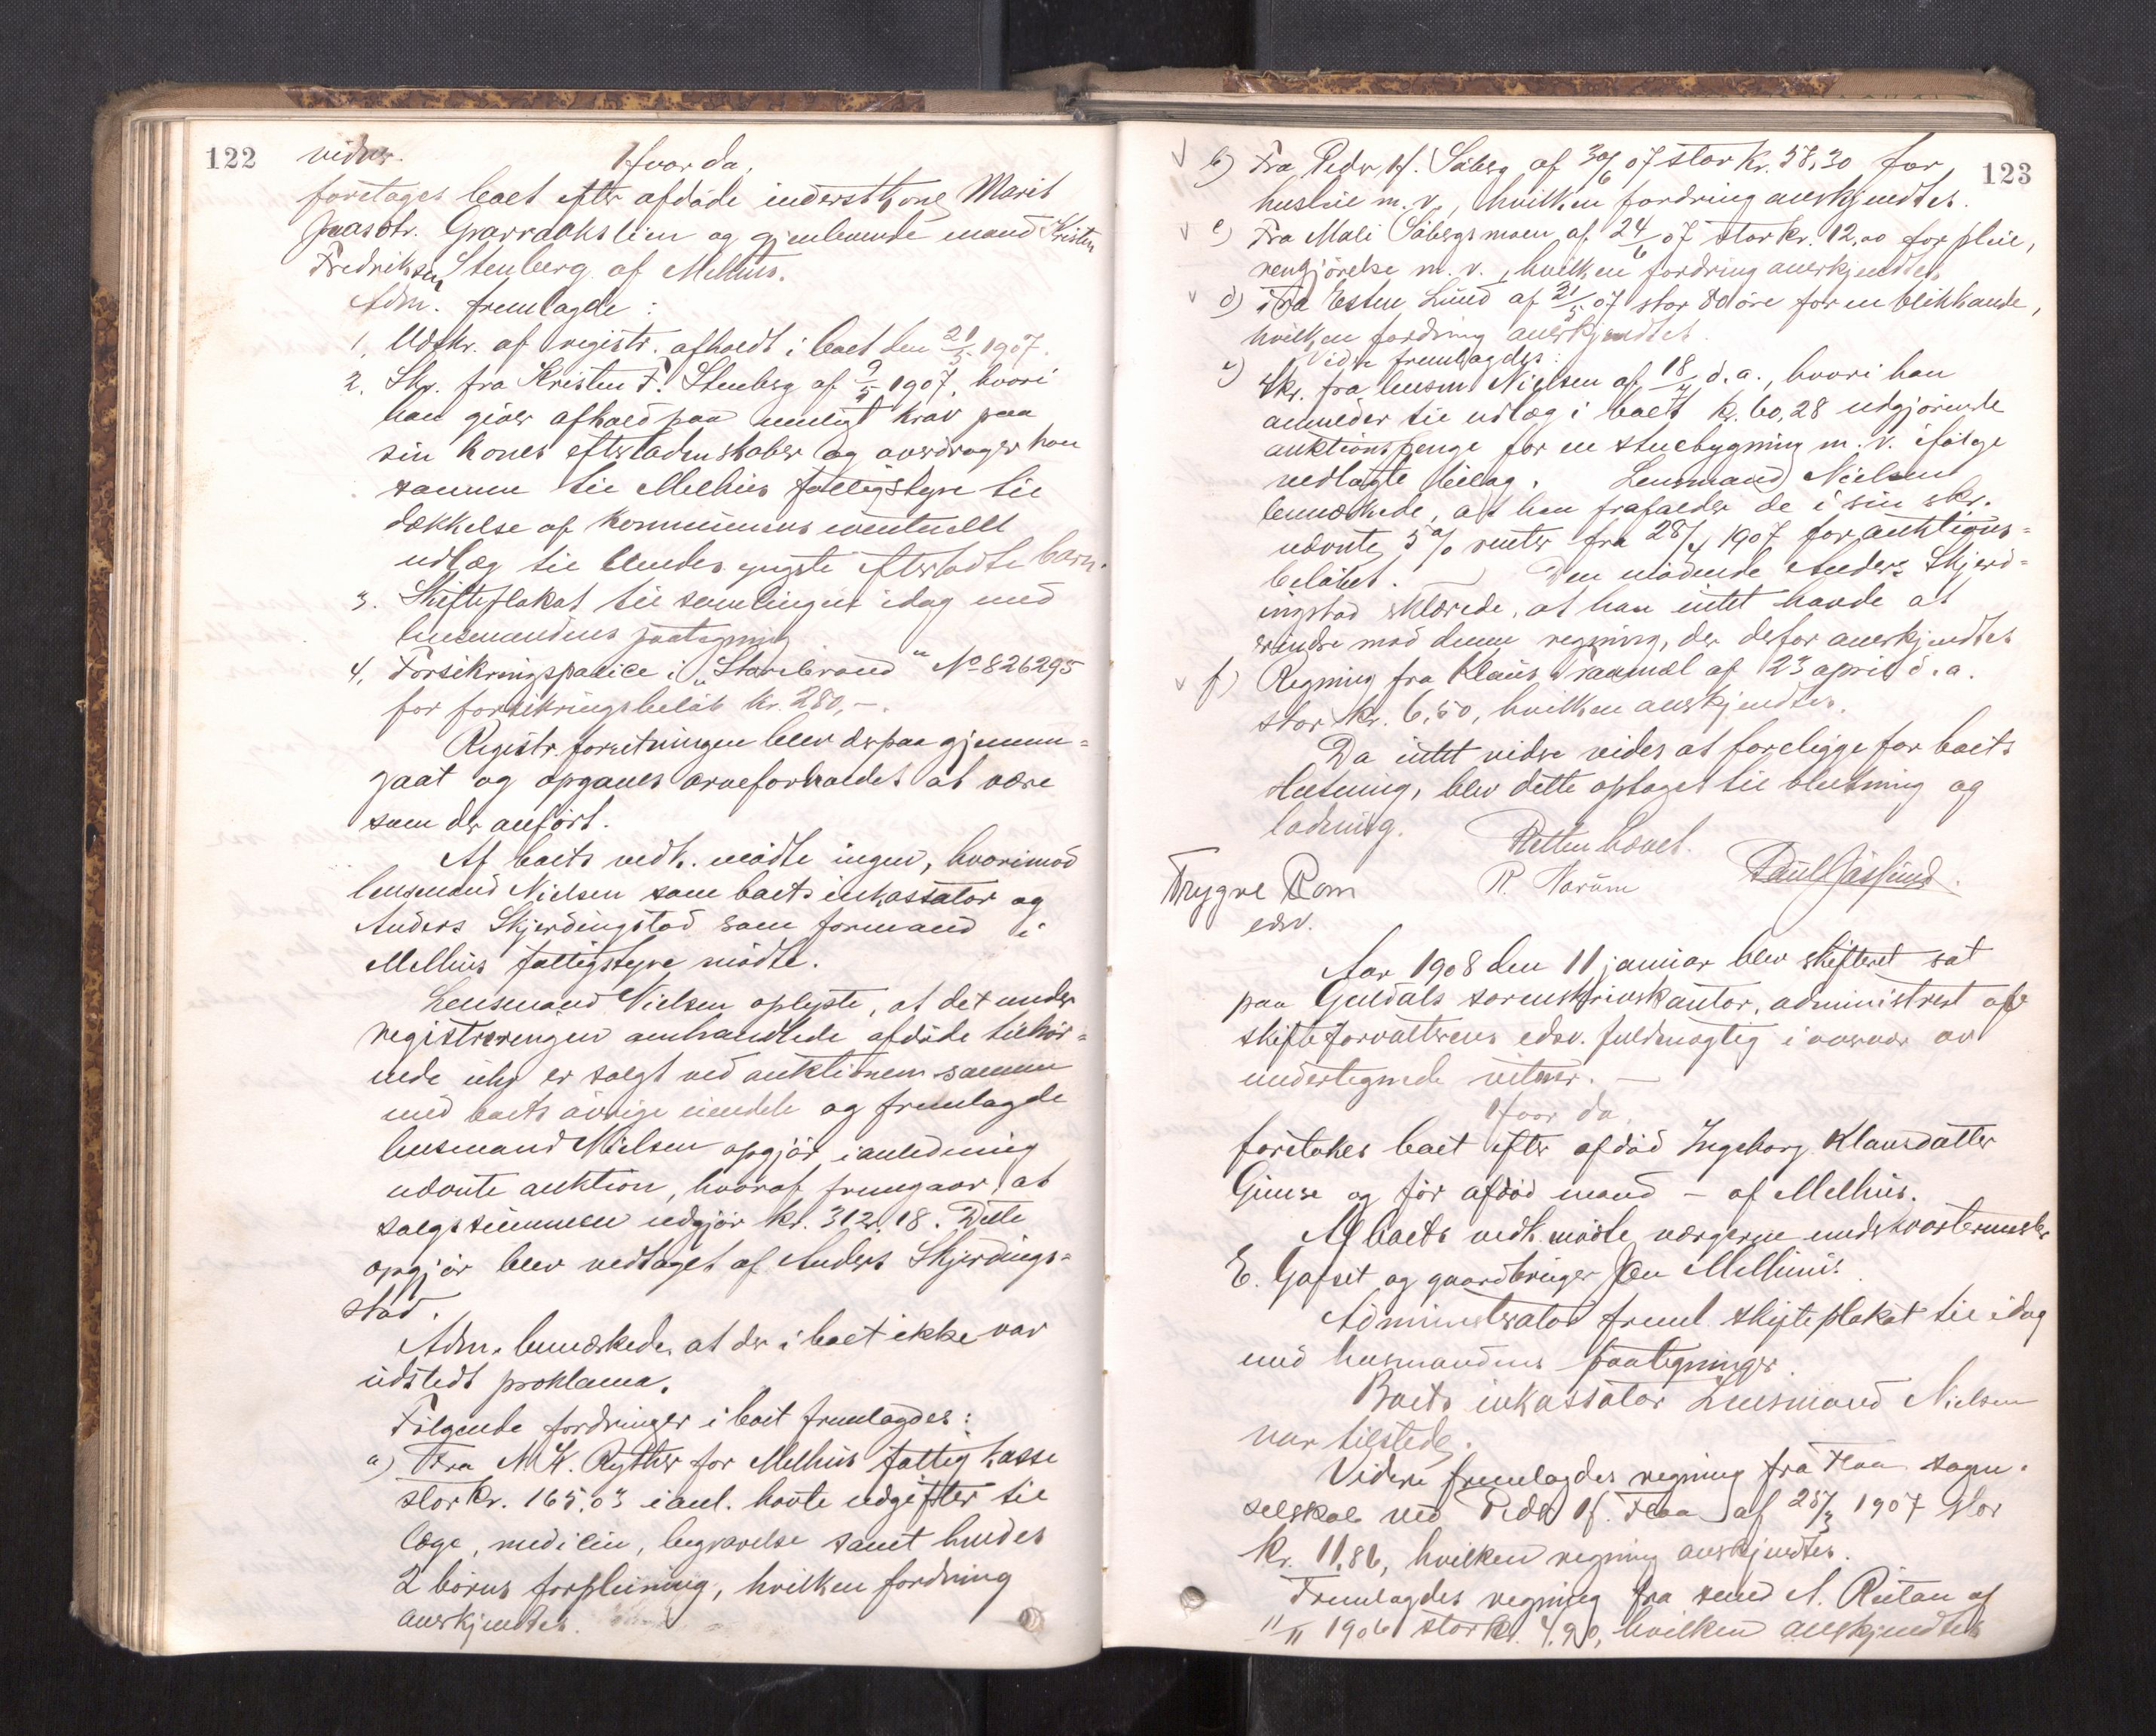 122
vidner. Hvor da,
foretages boet efter afdøde inderstkone Marit
Jonasdtr. Gravraakslien og gjenlevende mand Kristen
Fredriksen Stenberg af Melhus.
Adm. fremlagde:
1. Udskr. af registr. afholdt i boet den 21/5 1907.
2. Skr. fra Kristen F. Stenberg af 9/5 1907, hvori
han giver afkald paa muligt krav paa
sin kones efterladenskaber og overdrager han
samme til Melhus fattigstyre til
dækkelse af kommunens eventuellt
udlæg til hendes yngste efterladte barn.
3. Skifteplakat til samlingen idag med
lensmandens paategning
4. Forsikringspolice i "Storebrand" No 826295
for forsikringsbeløb kr. 280,-.
Registr. forretningen blev derpaa gjennem-
gaat og opgaves arveforholdet at være
som der anført.
Af boets vedk. mødte ingen, hvorimod
lensmand Nielsen som boets inkassator og
Anders Skjerdingstad som formand i
Melhus fattigstyre mødte.
Lensmand Nielsen oplyste, at det under
registreringen omhandlede afdøde tilhør-
ende uhr er solgt ved auktionen sammen
med boets øvrige eiendele og fremlagde
lensmand Nielsen opgjør i anledning
nævnte auktion, hvoraf fremgaar, at
salgssummen udgjør kr. 312,18. Dette
opgjør blev vedtaget af Anders Skjerdings-
stad.
Adm. bemerkede, at der i boet ikke var
udstedt proklama.
Følgende fordringer i boet fremlagdes:
a) Fra M. H. Rytter for Melhus fattigkasse
stor kr. 165,03 i anl. havte udgifter til
læge, medicin, begravelse samt hendes
2 børns forpleining, hvilken fordring
anerkjendtes.
123
b) Fra Peder H. Søberg af 30/6 07 stor kr. 58,30 for
husleie m. v., hvilken fordring anerkjendtes.
c) Fra Mali Søbergsmoen af 24/6 07 stor kr. 12,00 for pleie,
rengjørelse m. v., hvilken fordring anerkjendtes
d) Fra Esten Lund af 21/5 07 stor 80 øre for en blikkande,
hvilken fordring anerkjendtes.
Videre fremlagdes:
e) Skr. fra lensm. Nielsen af 18/4 d. a., hvori han
anmelder til udlæg i boet k. 60,28 udgjørende
auktionspenge for en stuebygning m. v. ifølge
vedlagte bilag. Lensmand Nielsen
bemærkede, at han frafalder de i sin skr.
nævnte 5 % renter fra 28/4 1907 for auktions-
beløbet. Den mødende Anders Skjerd-
ingstad erklærede, at han intet havde at
erindre mod denne regning, der derfor anerkjendtes
f) Regning fra Klaus Tranmæl af 23 april d. a.
stor kr. 6,50, hvilken anerkjendtes.
Da intet videre vides at foreligge for boets
slutning, blev dette optaget til slutning og
lodning. Retten hævet.
Trygve Rom R. Harum
edsv.
Aar 1908 den 11 januar blev skifteret sat
paa Guldals sorenskriverkontor, administrert af
skifteforvalterens edsv. fuldmægtig i overvær av
undertegnede vitner. –
Hvor da,
foretokes boet efter afdød Ingeborg Klausdatter
Gimse og før afdød mand – af Melhus.
Af boets vedk. mødte værgerne underkvartermester
E. Gafset og gaardbruger Jon Melhuus.
Administrator freml. skifteplakat til idag
med lensmandens paategninger.
Boets inkassator Lensmand Nielsen
var tilstede.
Videre fremlagdes regning fra Flaa sogne-
selskab ved Peder H. Flaa af 25/3 1907 stor
kr. 11,86, hvilken regning anerkjendtes.
Fremlagdes regning fra smed A. Ritan af
11/11 1906 stor kr. 4,90, hvilken anerkjendtes